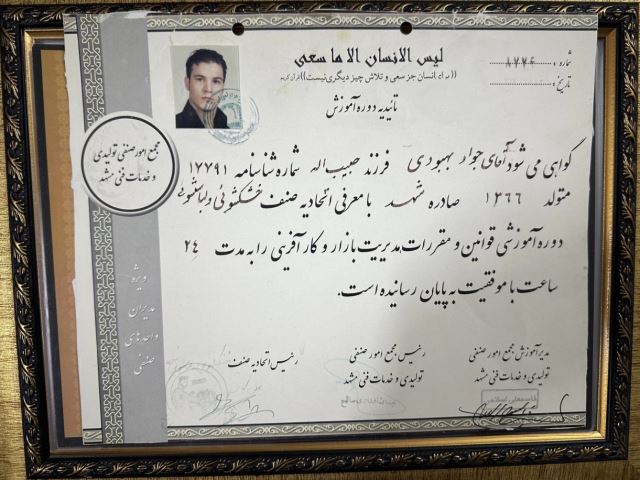 لیس الانسان الا ما سعی
((برای انسان جز سعی و تلاش چیز دیگری نیست)) قرآن کریم
شماره : ۸۷۷۴
تاریخ :
تائیدیه دوره آموزش
مجمع امور صنفی تولیدی
و خدمات فنی مشهد
گواهی می شود آقای جواد بهبودی فرزند حبیب اله شماره شناسنامه ۱۷۷۹۱
متولد ۱۳۶۶ صادره مشهد با معرفی اتحادیه صنف خشکشوئی و لباسشوئی
دوره آموزشی قوانین و مقررات مدیریت بازار و کارآفرینی را به مدت ۲۴
ساعت با موفقیت به پایان رسانیده است.
ویژه
مدیران
واحدهای
صنفی
مدیر آموزش مجمع امور صنفی
تولیدی و خدمات فنی مشهد
رئیس مجمع امور صنفی
تولیدی و خدمات فنی مشهد
رئیس اتحادیه صنف